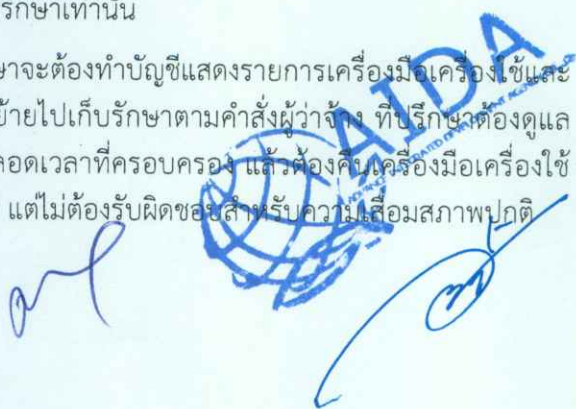 รักษาเท่านั้น
ษาจะต้องทำบัญชีแสดงรายการเครื่องมือเครื่องใช้และ
ย้ายไปเก็บรักษาตามคำสั่งผู้ว่าจ้าง ที่ปรึกษาต้องดูแล
ลอดเวลาที่ครอบครอง แล้วต้องคืนเครื่องมือเครื่องใช้
แต่ไม่ต้องรับผิดชอบสำหรับความเสื่อมสภาพปกติ
AIDA